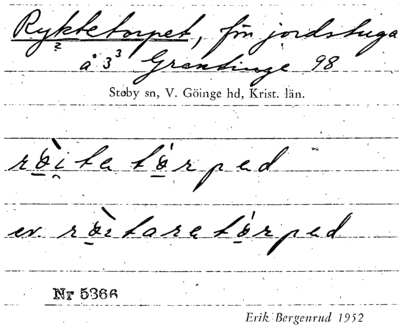 Ryktetorpet, f. jordstuga
å 3³ Grantinge 98
Stoby sn, V. Göinge hd, Krist. län.
rò̱i̯ta tó̱rpad
ev. rò̱itara tó̱rpad
Nr 5366
Erik Bergenrud 1952